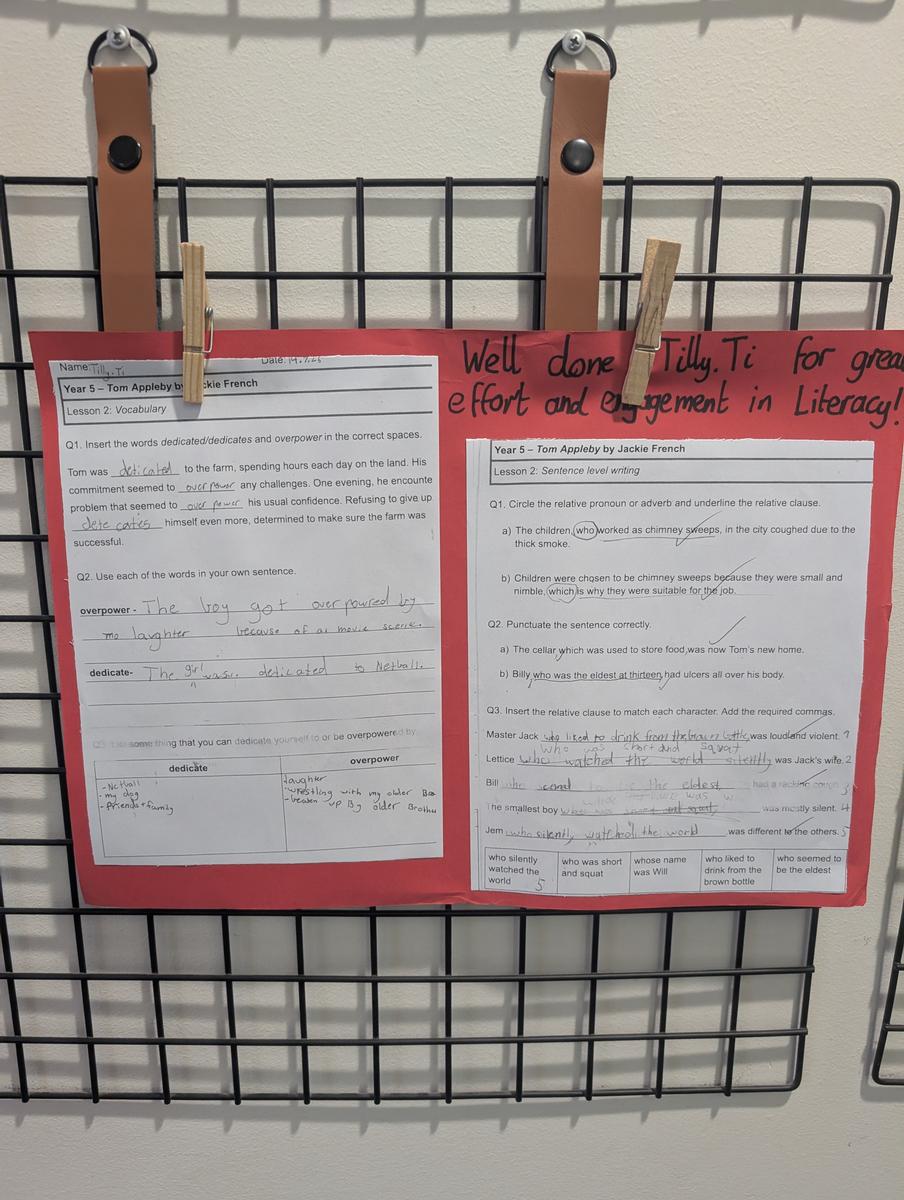 Name: Tilly.Ti Date: 14.7.25
Year 5 – Tom Appleby by Jackie French
Lesson 2: Vocabulary
Q1. Insert the words dedicated/dedicates and overpower in the correct spaces.
Tom was deticated to the farm, spending hours each day on the land. His
commitment seemed to over power any challenges. One evening, he encounte
problem that seemed to over power his usual confidence. Refusing to give up
dete cates himself even more, determined to make sure the farm was
successful.
Q2. Use each of the words in your own sentence.
overpower - The boy got over powred by
mo laughter because of a movie scene.
dedicate- The girl was deticated to Netball.
something that you can dedicate yourself to or be overpowered by
dedicate overpower
- Netball
- my dog
- Friends + family
laughter
- wrestling with my older Bro
- beaten up By older Brother
Well done Tilly.Ti for grea
effort and engagement in Literacy!
Year 5 – Tom Appleby by Jackie French
Lesson 2: Sentence level writing
Q1. Circle the relative pronoun or adverb and underline the relative clause.
a) The children, who worked as chimney sweeps, in the city coughed due to the
thick smoke.
b) Children were chosen to be chimney sweeps because they were small and
nimble, which is why they were suitable for the job.
Q2. Punctuate the sentence correctly.
a) The cellar, which was used to store food, was now Tom's new home.
b) Billy, who was the eldest at thirteen, had ulcers all over his body.
Q3. Insert the relative clause to match each character. Add the required commas.
Master Jack who liked to drink from the brown bottle, was loud and violent.
who was short and squat
Lettice who watched the world silently was Jack's wife. 2
Bill the eldest had a racking cough. 3
The smallest boy was mostly silent. 4
Jem who silently watched the world was different to the others. 5
who silently
watched the
world 5
who was short
and squat
whose name
was Will
who liked to
drink from the
brown bottle
who seemed to
be the eldest